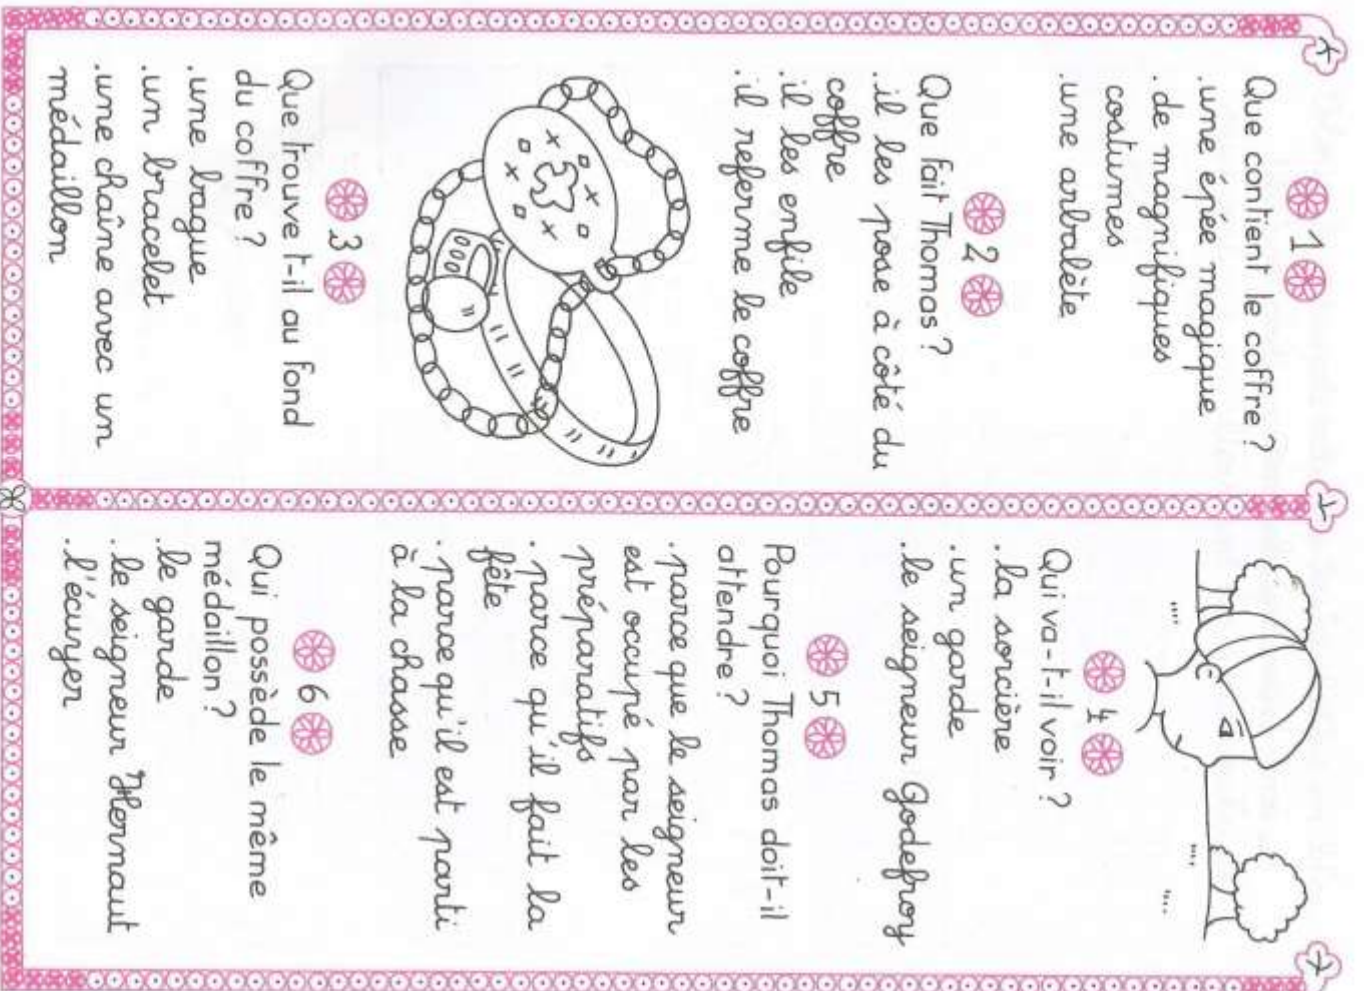 1
Que contient le coffre ?
.une épée magique
.de magnifiques
costumes
.une arbalète
2
Que fait Thomas ?
.il les pose à côté du
coffre
.il les enfile
.il referme le coffre
3
Que trouve t-il au fond
du coffre ?
.une bague
.un bracelet
.une chaîne avec un
médaillon
4
Qui va-t-il voir ?
.la sorcière
.un garde
.le seigneur Godefroy
5
Pourquoi Thomas doit-il
attendre ?
.parce que le seigneur
est occupé par les
préparatifs
.parce qu'il fait la
fête
.parce qu'il est parti
à la chasse
6
Qui possède le même
médaillon ?
.le garde
.le seigneur Hernaut
.l'écuyer